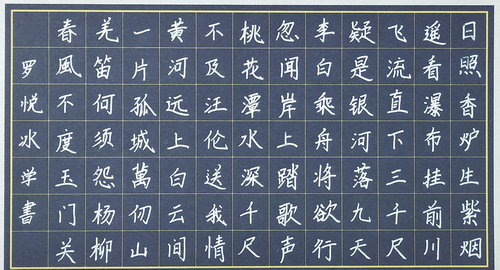 日照香炉生紫烟
遥看瀑布挂前川
飞流直下三千尺
疑是银河落九天
李白乘舟将欲行
忽闻岸上踏歌声
桃花潭水深千尺
不及汪伦送我情
黄河远上白云间
一片孤城萬仞山
羌笛何须怨杨柳
春風不度玉门关
罗悦冰学書